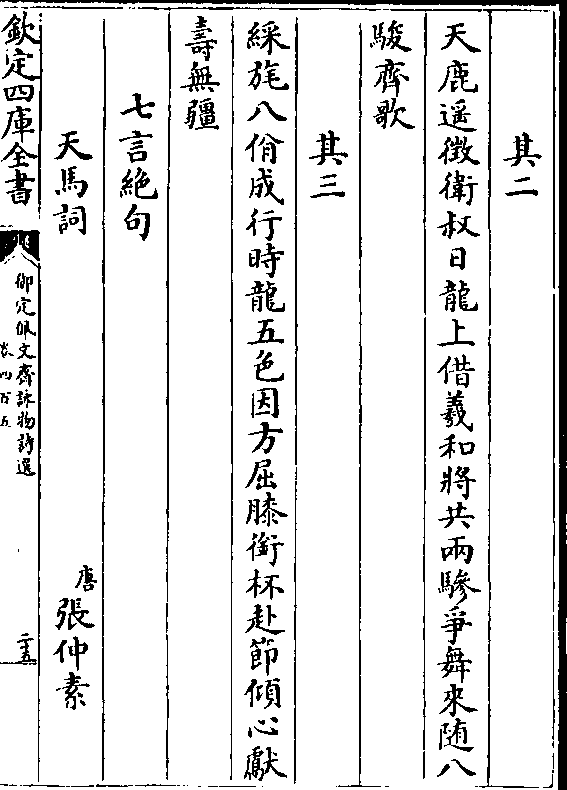 其二
天鹿遥徴衛叔日龍上借羲和將共兩驂爭舞來随八
駿齊歌
其三
綵旄八佾成行時龍五色因方屈膝銜杯赴節傾心獻
壽無疆
七言絶句
天馬詞
唐張仲素
欽定四庫全書
御定佩文齋詠物詩選
卷四百五
二十五